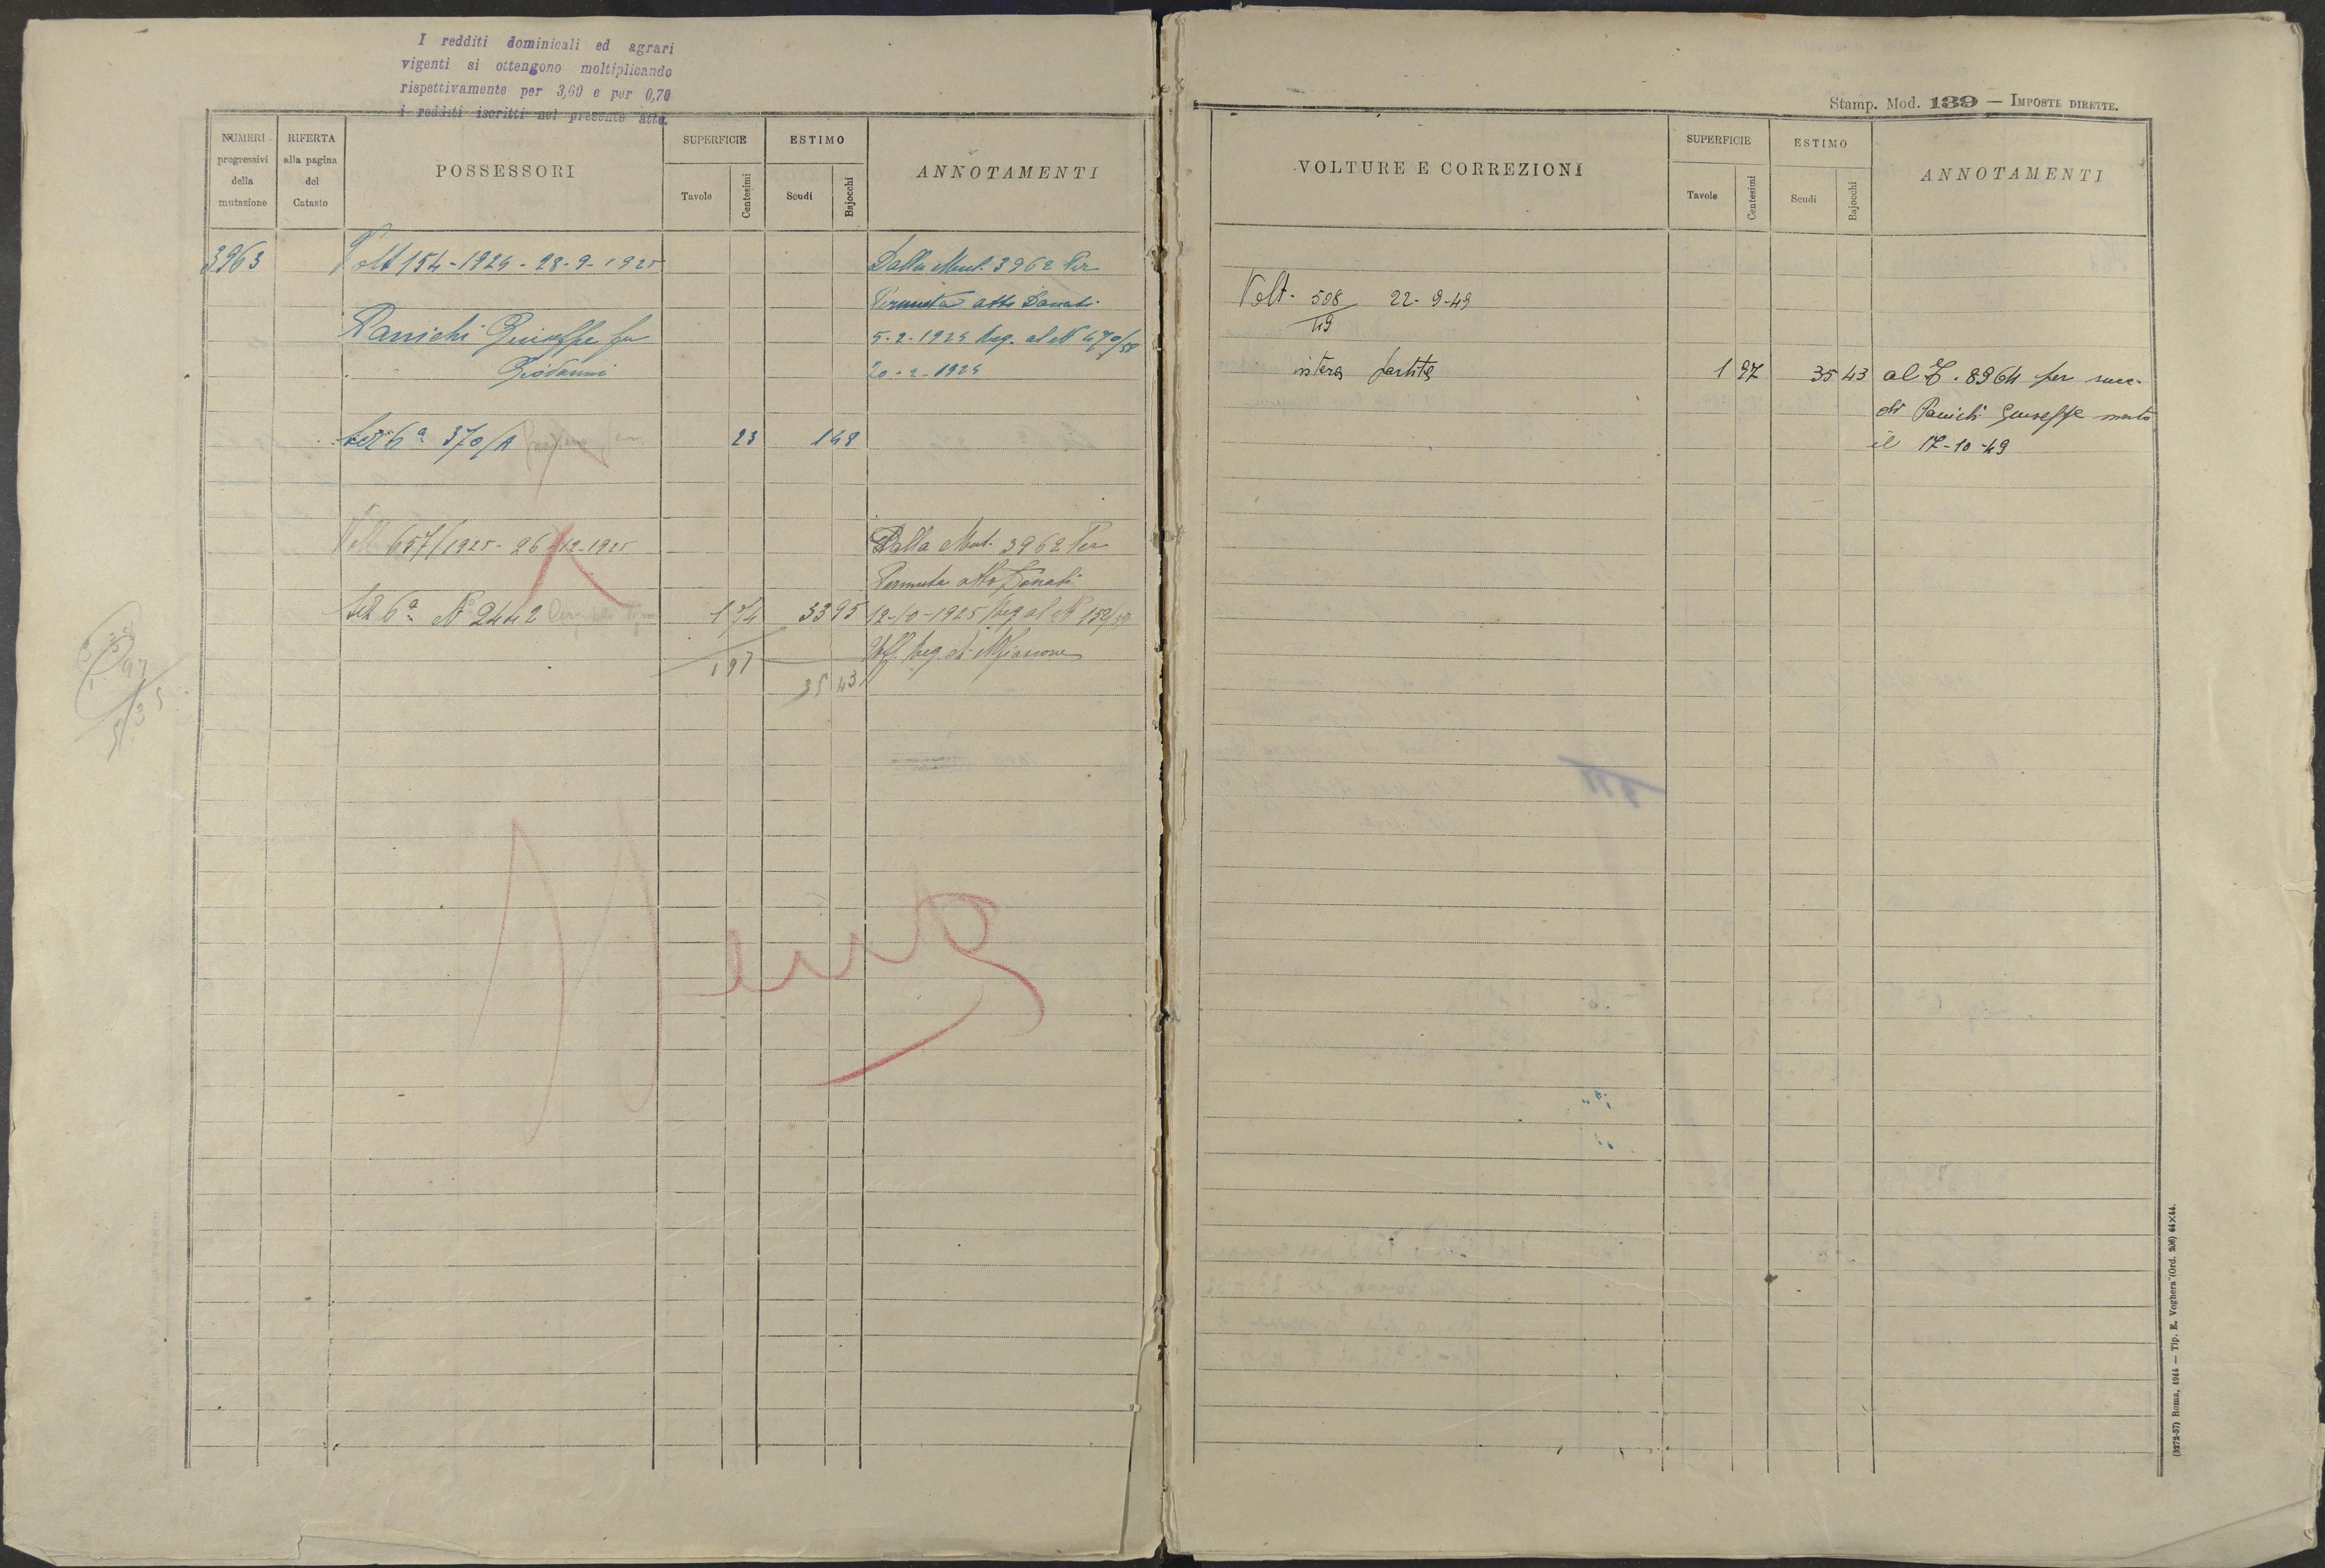 I redditi dominicali ed agrari
vigenti si ottengono moltiplicando
rispettivamente per 3,60 e per 0,70
i redditi iscritti nel presente atto.
NUMERI progressivi della mutazione
RIFERTA alla pagina del Catasto
POSSESSORI
SUPERFICIE
Tavole
Centesimi
ESTIMO
Scudi
Bajocchi
ANNOTAMENTI
3963
Volt 154-1925 - 28-9-1925
Dalla Mut. 3962 Per
Permuta atto Donati
Panichi Giuseppe fu
5-2-1925 Reg. al N 470/58
Giovanni
20-2-1925
Sez 6ª 370/A
23
1 48
Volt 657/1925 - 26-12-1925
Dalla Mut. 3962 Per
Permuta atto Donati
Sez 6ª N 2442
1 74
33 95
12-10-1925 Reg al N
1 97
Uff. Reg. di
35 43
Stamp. Mod. 139 — IMPOSTE DIRETTE.
VOLTURE E CORREZIONI
SUPERFICIE
Tavole
Centesimi
ESTIMO
Scudi
Bajocchi
ANNOTAMENTI
Volt. 508/49 22-9-49
intera partita
1 97
35 43
al T. 8964 per succ.
di Panichi Giuseppe morto
il 17-10-49
(3272-57) Roma, 1914 — Tip. E. Voghera (Ord. 206) 64×44.